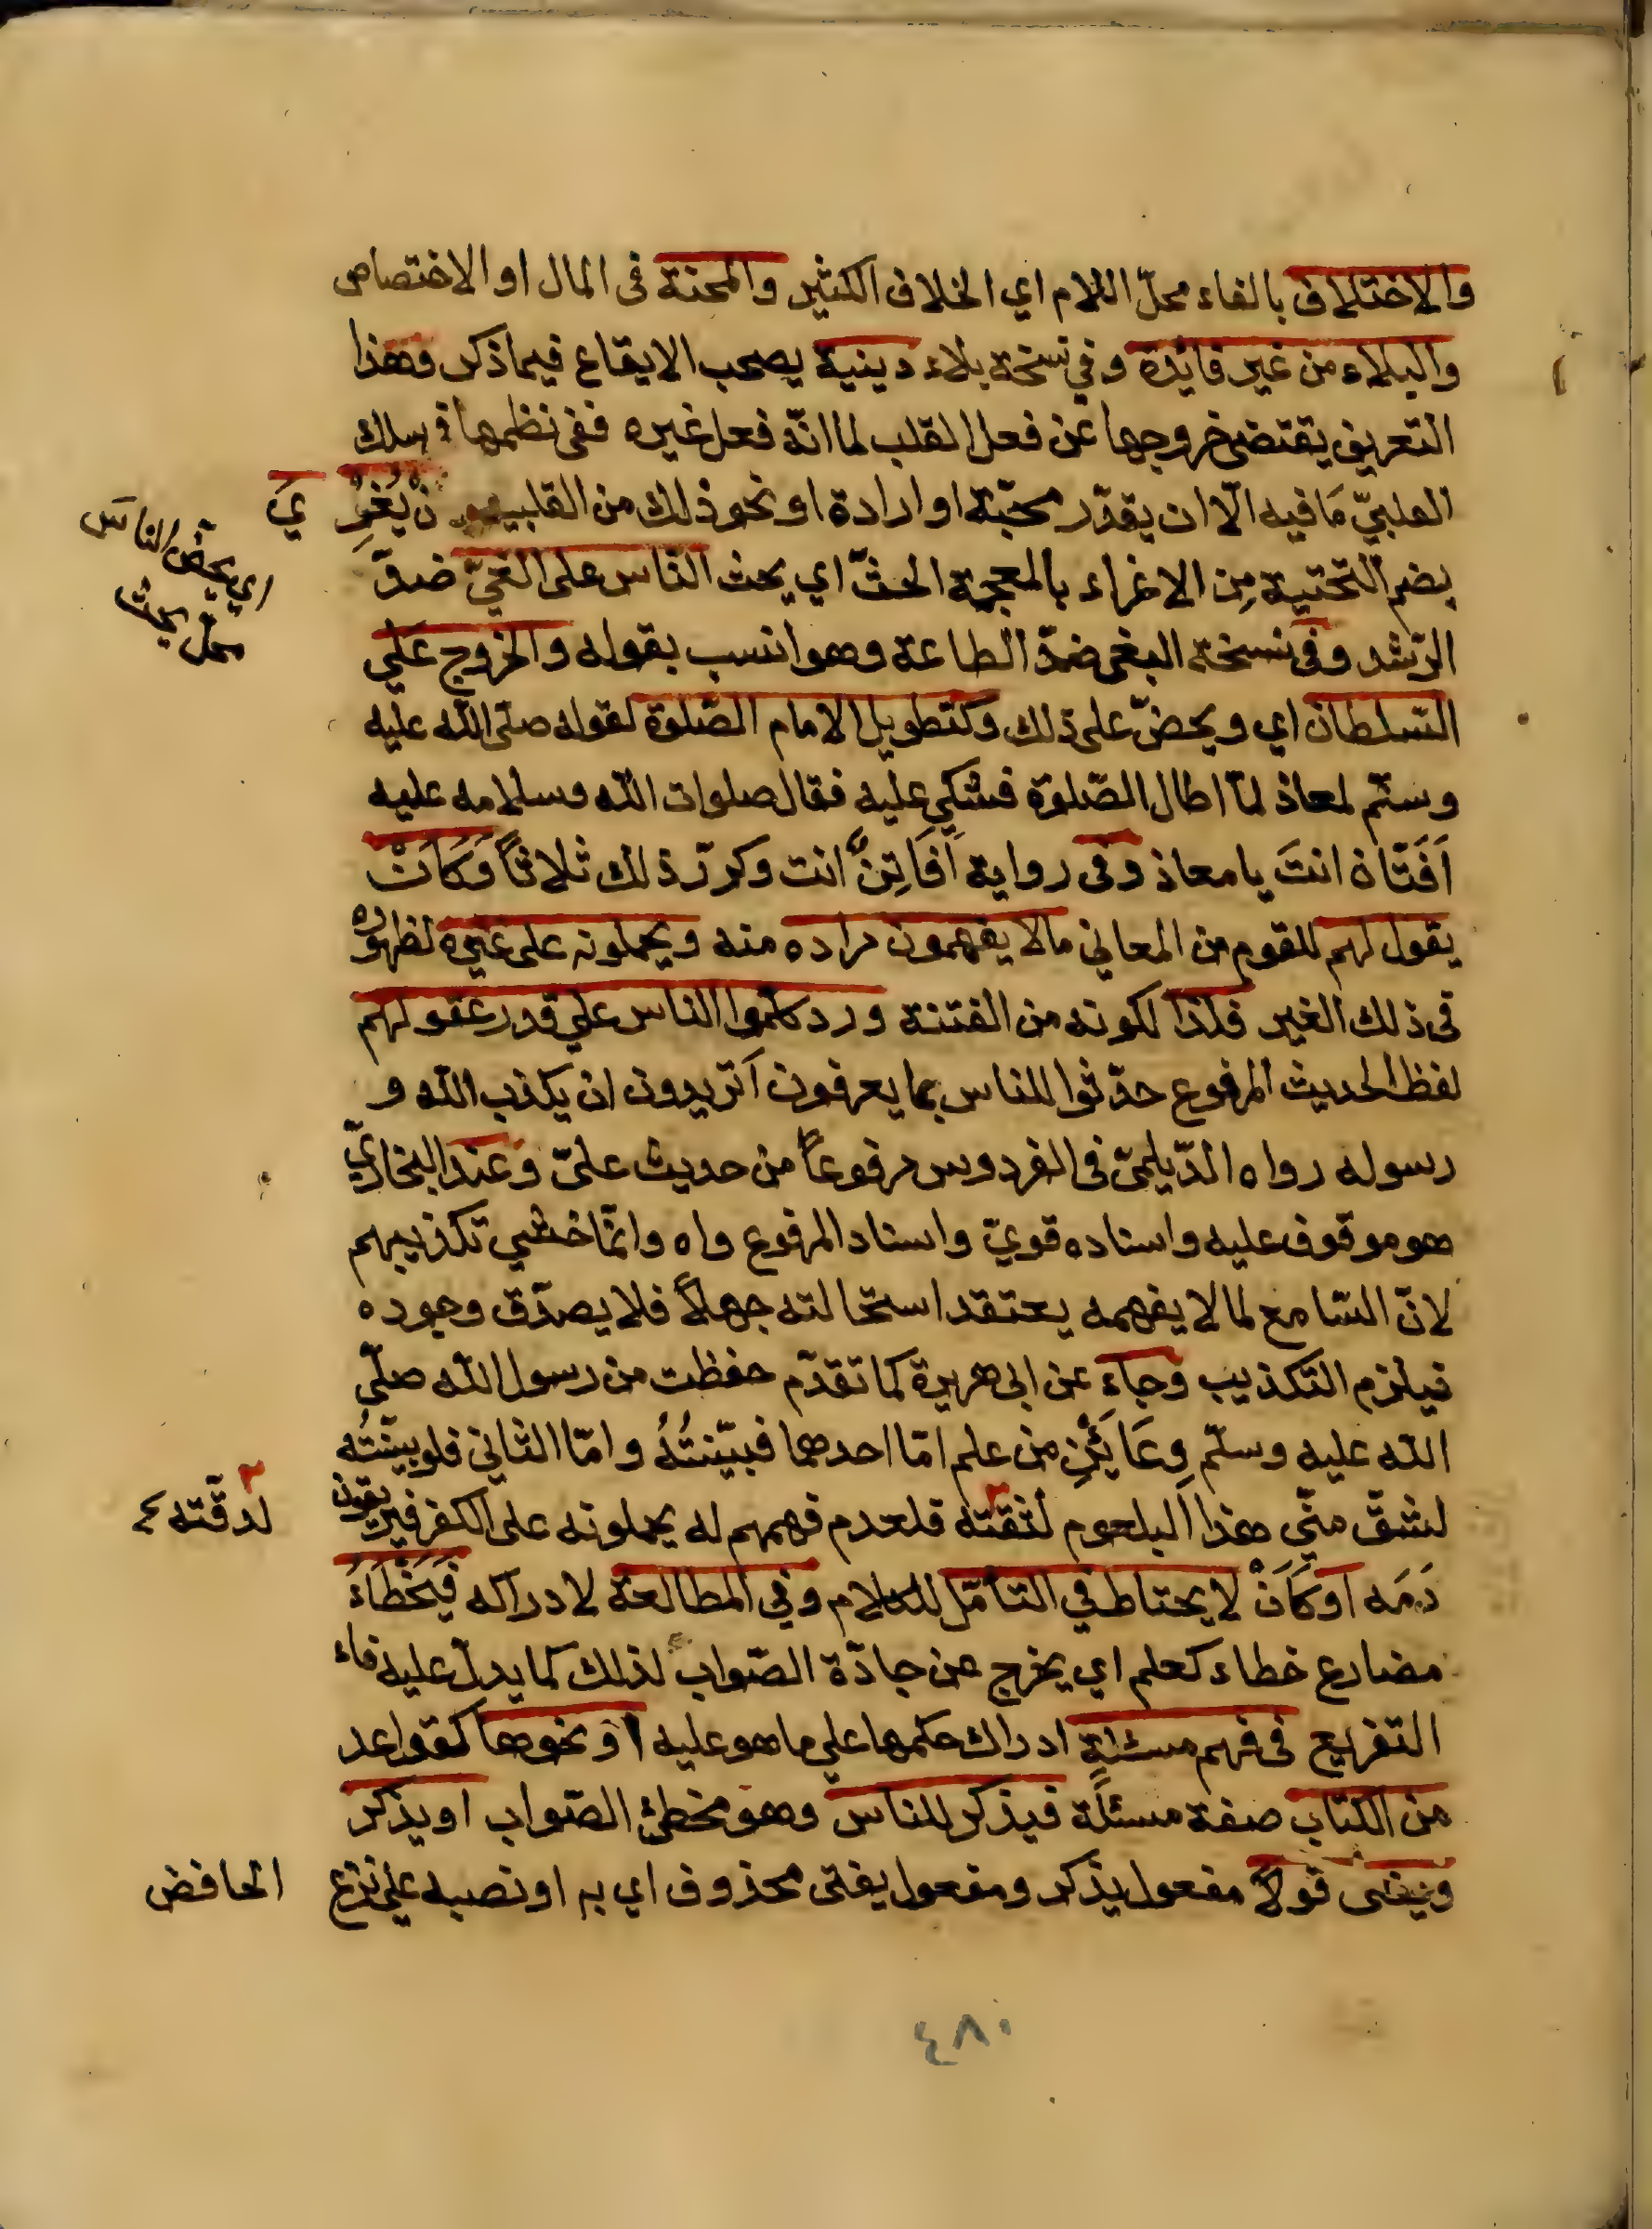 والاختلاف بالفاء محلّ اللام اي الخلاف الكثير والمحنة فى المال او الاختصاص
والبلاء من غير فايدة وفي نسخة بلاء دينية يصحب الايقاع فيما ذكر وهذا
التعريف يقتضى خروجها عن فعل القلب لما انّه فعل غيره ففى نظمها فى سلك
القلبيّ مَا فيه الّا ان يقدّر محبّة او ارادة او نحو ذلك من القلبية يُغْرِي
بضم التّحتية مِن الاغراء بالمعجمة الحثّ اي يحث النّاس على الغيّ ضدّ
اي يحضّ الناس
محل يحث
الرّشد وفى نسخة البغى ضدّ الطاعة وهو انسب بقوله والخروج على
السّلطان اي ويحضّ على ذلك وكتطويل الامام الصّلوة لقوله صلّى اللّه عليه
وسلّم لمعاذ لمّا اطال الصّلوة فشكي عليه فقال صلوات اللّه وسلامه عليه
اَفَتّان انتَ يا معاذ وفى رواية اَفَاتِنٌ انت وكرّر ذلك ثلاثاً وَكَاَنْ
يقول لهم للقوم من المعاني مالا يفهمون مراده منه ويحملونه على غيره لظهوره
فى ذلك الغير فلذا لكونه من الفتنة ورد كلّموا الناس علي قدر عقولهم
لفظ الحديث المرفوع حدّثوا للناس بما يعرفون اَتريدون ان يكذب اللّه و
رسوله رواه الدّيلميّ فى الفردوس مرفوعاً من حديث عليّ وعند البخاريّ
هو موقوف عليه واسناده قويّ واسناد المرفوع واه وانّما خشي تكذيبهم
لانّ السّامع لما لا يفهمه يعتقد استحالته جهلاً فلا يصدّق وجوده
فيلزم التكذيب وجاء عن ابى هريرة كما تقدّم حفظت من رسول اللّه صلّى
اللّه عليه وسلّم وِعَائَيْنِ من علم امّا احدهما فبيّنتُهُ وامّا الثاني فلو بيّنتُه
لشقّ منّي هذا البلعوم لثقته فلعدم فهمهم له يحملونه على الكفر فيريقون
لدقّته
دَمَه اَوكَاَنْ لا يحتاط في التأمّل للكلام وفي المطالعة لادراكه فَيَخْطَاءُ
مضارع خطاء كعلم اي يخرج عن جادّة الصّواب لذلك كما يدلّ عليه فاء
التفريع فى فهم مسئلة ادراك حكمها علي ما هو عليه او نحوها كقواعد
من الكتاب صفة مسئلة فيذكر للناس وهو مخطئ الصّواب او يذكر
ويفتى قولاً مفعول يذكر ومفعول يفتى محذوف اي به او نصبه علي نزع
الخافض
٤٨٠